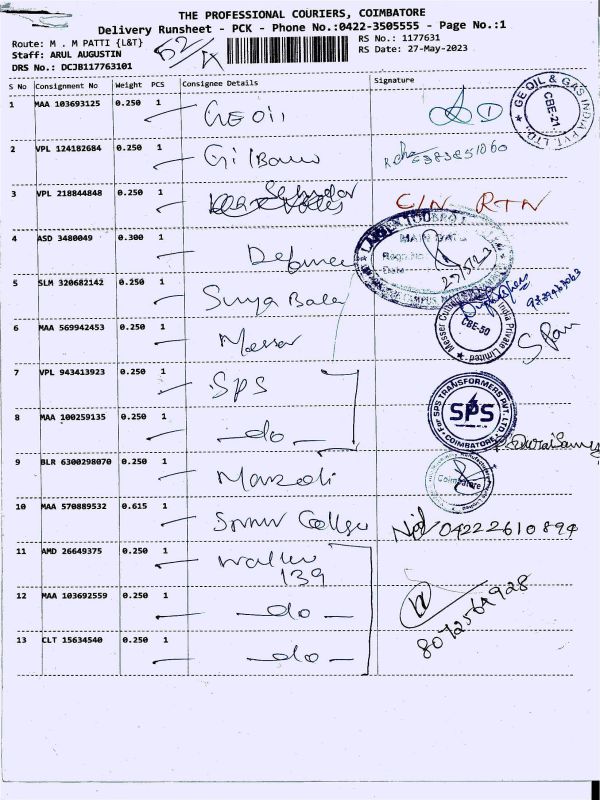 THE PROFESSIONAL COURIERS, COIMBATORE
Delivery Runsheet - PCK - Phone No.:0422-3505555 - Page No.:1
Route: M . M PATTI {L&T}
RS No.: 1177631
Staff: ARUL AUGUSTIN
RS Date: 27-May-2023
DRS No.: DCJB117763101
S No Consignment No Weight PCS Consignee Details Signature
1 MAA 103693125 0.250 1 GEOil
GE OIL & GAS INDIA PVT. LTD.
CBE-21
2 VPL 124182684 0.250 1
3 VPL 218844848 0.250 1 C/N RTN
4 ASD 3480049 0.300 1 Defence
MAIN GATE
Regn.No.
Date
5 SLM 320682142 0.250 1 Surya Bala
6 MAA 569942453 0.250 1 Messer
CBE-50
India Private Limited
7 VPL 943413923 0.250 1 SPS
For SPS TRANSFORMERS PVT. LTD.
SPS
COIMBATORE
8 MAA 100259135 0.250 1 -do-
9 BLR 6300298070 0.250 1
Coimbatore
10 MAA 570889532 0.615 1 College 04222610894
11 AMD 26649375 0.250 1 139
12 MAA 103692559 0.250 1 -do-
8072564928
13 CLT 15634540 0.250 1 -do-